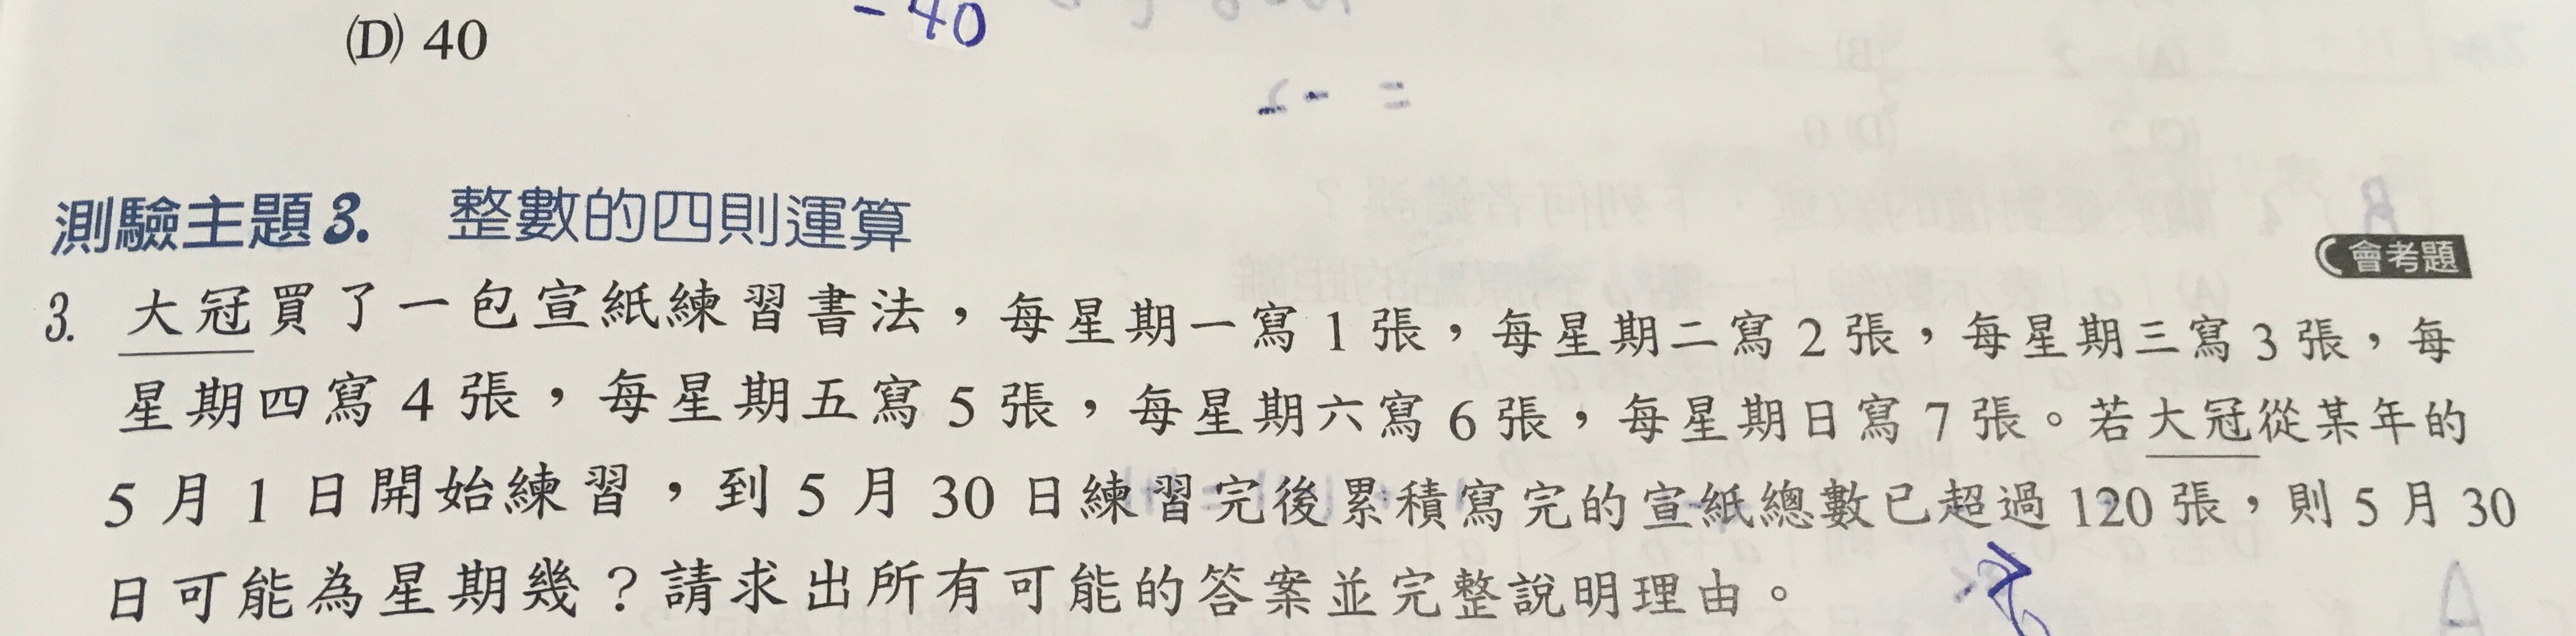 (D) 40
-40
測驗主題3. 整數的四則運算
會考題
3. 大冠買了一包宣紙練習書法，每星期一寫1張，每星期二寫2張，每星期三寫3張，每
星期四寫4張，每星期五寫5張，每星期六寫6張，每星期日寫7張。若大冠從某年的
5月1日開始練習，到5月30日練習完後累積寫完的宣紙總數已超過120張，則5月30
日可能為星期幾？請求出所有可能的答案並完整說明理由。